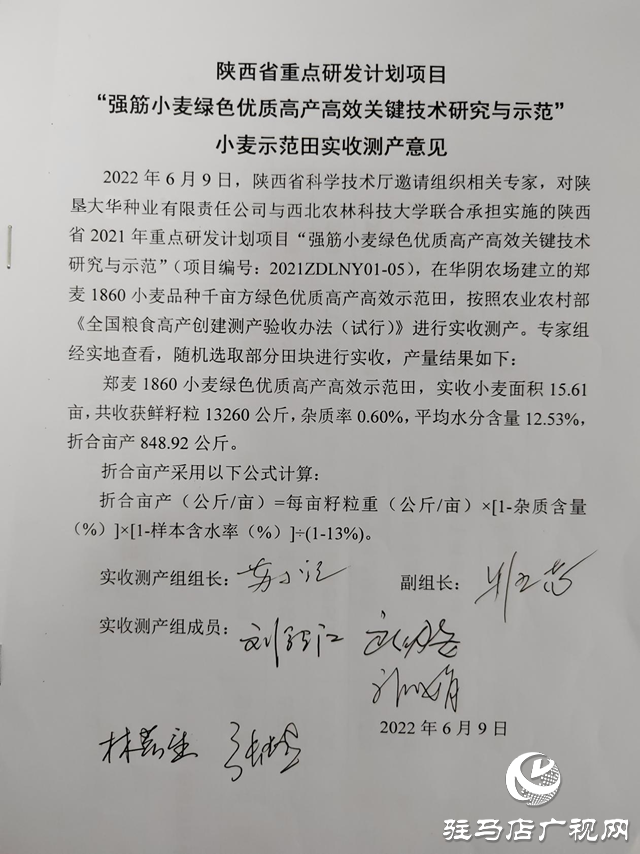 陕西省重点研发计划项目
“强筋小麦绿色优质高产高效关键技术研究与示范”
小麦示范田实收测产意见
2022 年 6 月 9 日，陕西省科学技术厅邀请组织相关专家，对陕
垦大华种业有限责任公司与西北农林科技大学联合承担实施的陕西
省 2021 年重点研发计划项目“强筋小麦绿色优质高产高效关键技术
研究与示范”（项目编号：2021ZDLNY01-05），在华阴农场建立的郑
麦 1860 小麦品种千亩方绿色优质高产高效示范田，按照农业农村部
《全国粮食高产创建测产验收办法（试行）》进行实收测产。专家组
经实地查看，随机选取部分田块进行实收，产量结果如下：
郑麦 1860 小麦绿色优质高产高效示范田，实收小麦面积 15.61
亩，共收获鲜籽粒 13260 公斤，杂质率 0.60%，平均水分含量 12.53%，
折合亩产 848.92 公斤。
折合亩产采用以下公式计算：
折合亩产（公斤/亩）=每亩籽粒重（公斤/亩）×[1-杂质含量
（%）]×[1-样本含水率（%）]÷(1-13%)。
实收测产组组长： 副组长：
实收测产组成员：
2022 年 6 月 9 日
驻马店广视网